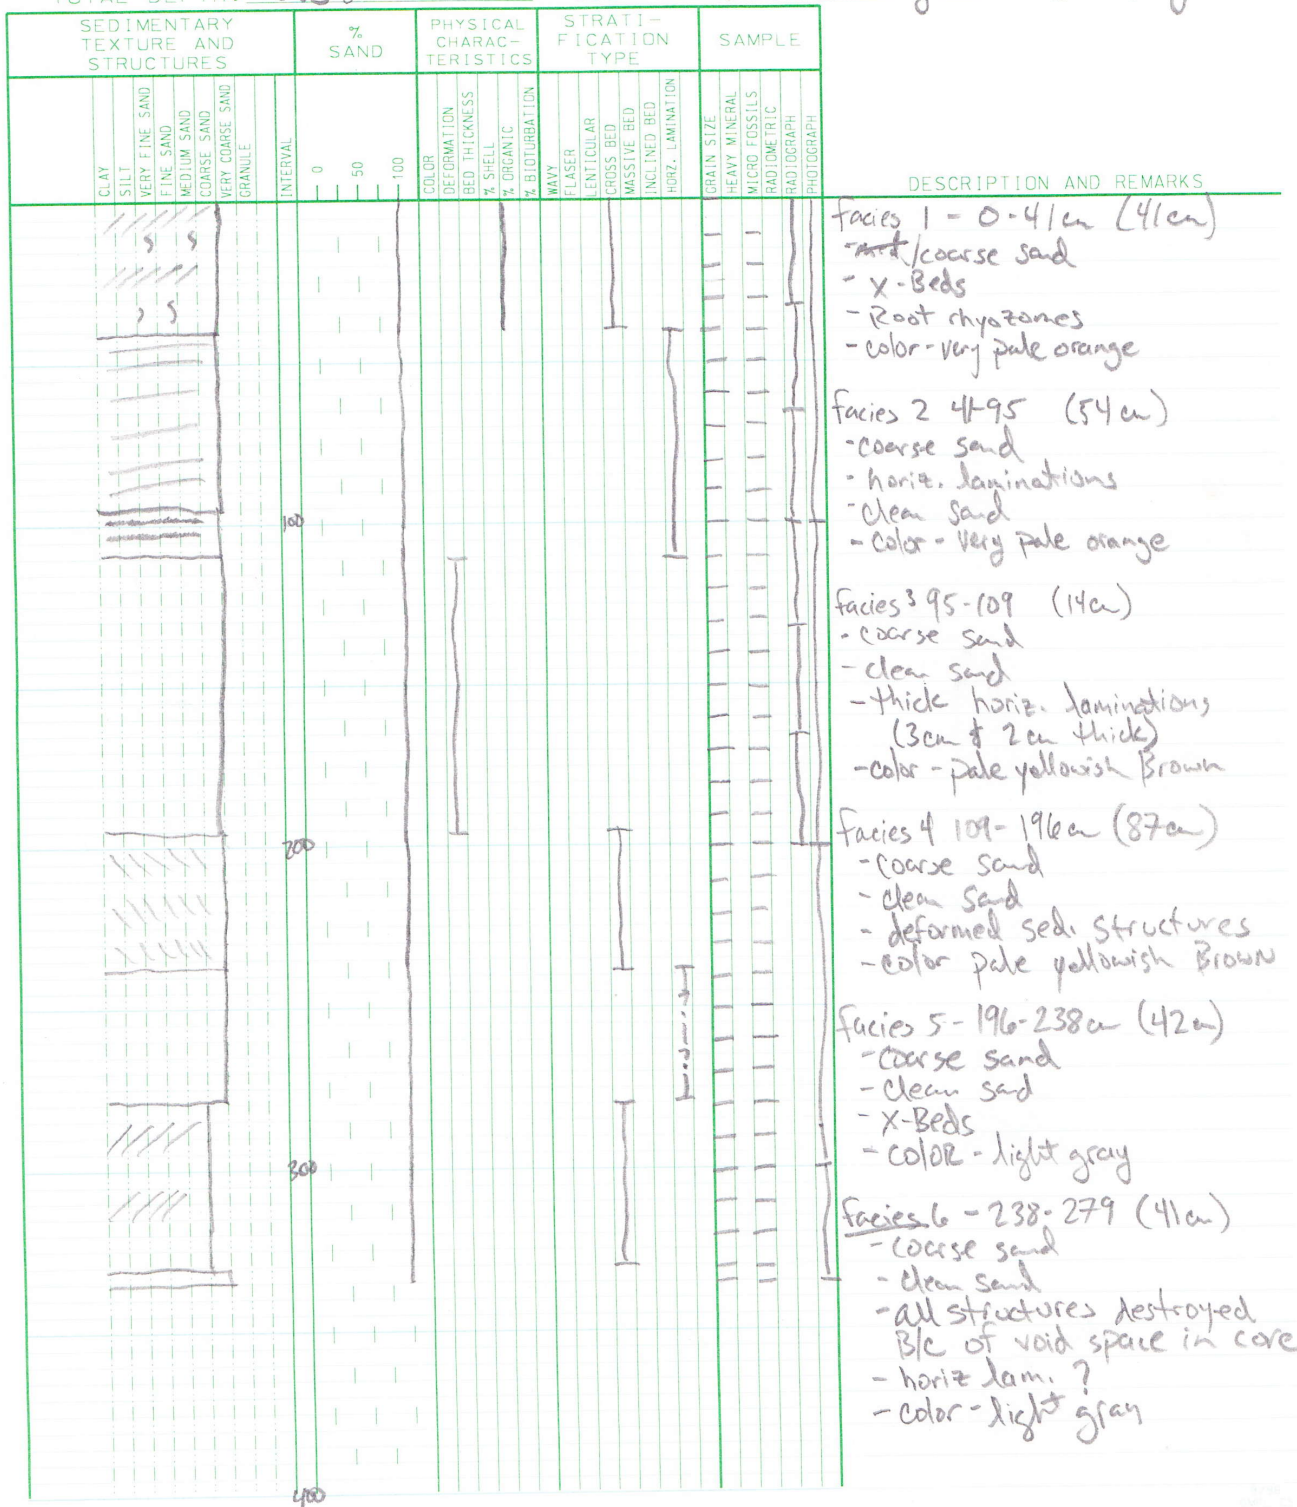 TOTAL DEPTH
SEDIMENTARY
TEXTURE AND
STRUCTURES
%
SAND
PHYSICAL
CHARAC-
TERISTICS
STRATI-
FICATION
TYPE
SAMPLE
CLAY
SILT
VERY FINE SAND
FINE SAND
MEDIUM SAND
COARSE SAND
VERY COARSE SAND
GRANULE
INTERVAL
0
50
100
COLOR
DEFORMATION
BED THICKNESS
% SHELL
% ORGANIC
% BIOTURBATION
WAVY
FLASER
LENTICULAR
CROSS BED
MASSIVE BED
INCLINED BED
HORZ. LAMINATION
GRAIN SIZE
HEAVY MINERAL
MICRO FOSSILS
RADIOMETRIC
RADIOGRAPH
PHOTOGRAPH
DESCRIPTION AND REMARKS
facies 1 - 0-41cm (41cm)
/coarse sand
- X-Beds
- Root rhyozomes
- color - very pale orange
facies 2 41-95 (54cm)
- coarse sand
- horiz. laminations
- clean sand
- color - very pale orange
facies 3 95-109 (14cm)
- coarse sand
- clean sand
- thick horiz. laminations
(3cm & 2cm thick)
- color - pale yellowish Brown
facies 4 109-196cm (87cm)
- coarse sand
- clean sand
- deformed sed. structures
- color pale yellowish Brown
facies 5 - 196-238cm (42cm)
- coarse sand
- clean sand
- X-Beds
- color - light gray
facies 6 - 238-279 (41cm)
- coarse sand
- clean sand
- all structures destroyed
B/c of void space in core
- horiz lam. ?
- color - light gray
100
200
300
400